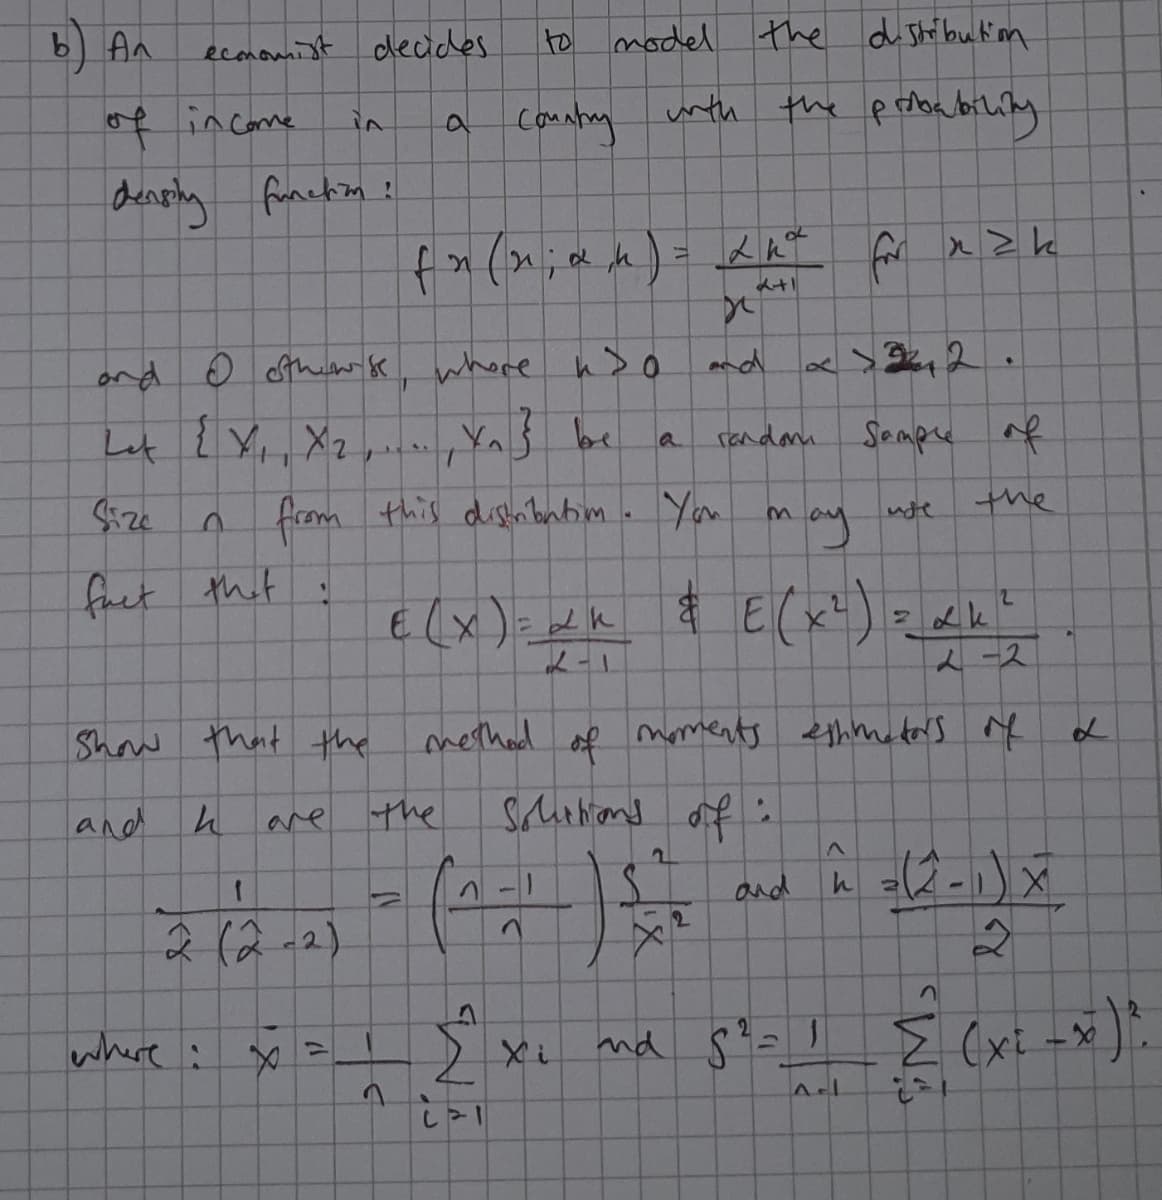 b) An economist decides to model the distribution
of income in a country with the probability
density function :
f x (x ; α, k) = αk^α / x^(α+1) for x ≥ k
and 0 otherwise, where k > 0 and α > 2.
Let { X₁, X₂, ....., Xn } be a random sample of
size n from this distribution. You may use the
fact that :
E (X) = αk / α-1 & E(x²) = αk² / α-2 .
Show that the method of moments estimators of α
and k are the solutions of :
1 / α̂ (α̂ -2) = (n-1 / n) S² / x̄² and k̂ = (α̂-1) x̄ / α̂
where : x̄ = 1/n Σ(i=1 to n) xi and S² = 1/n-1 Σ(i=1 to n) (xi - x̄)².